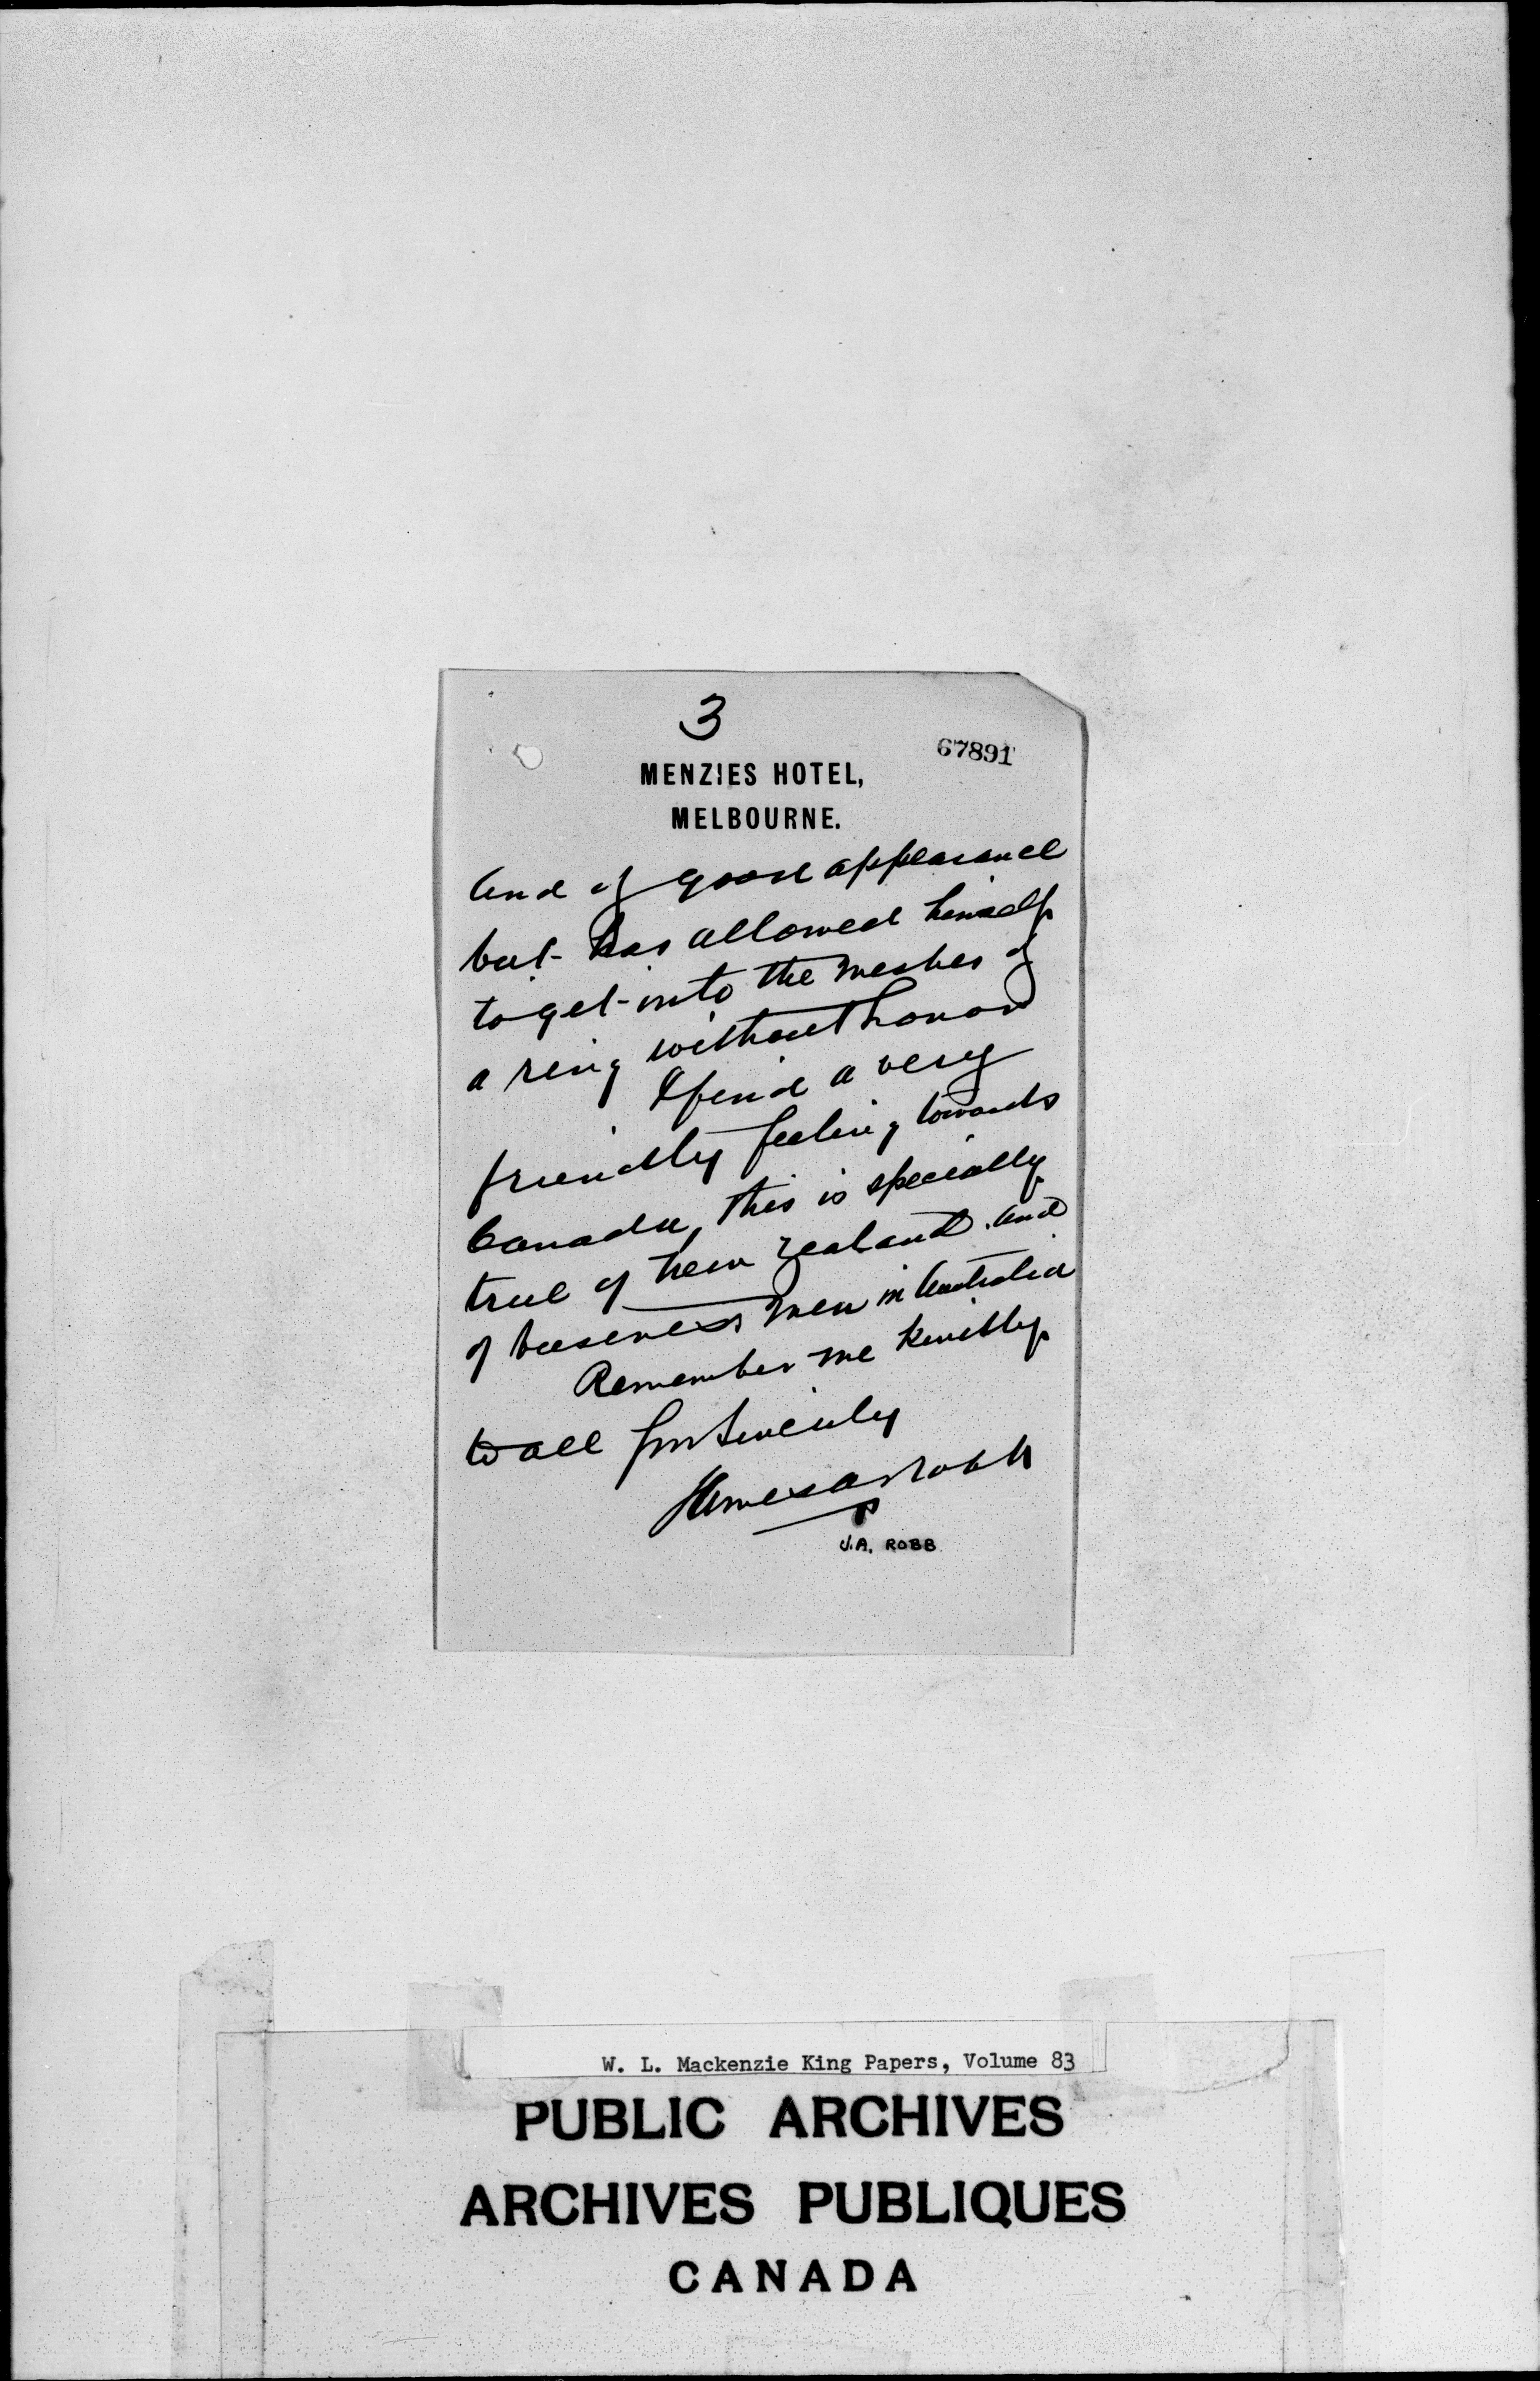 3
67891
MENZIES HOTEL,
MELBOURNE.
and of good appearance
but has allowed himself
to get into the meshes of
a ring without honor
I find a very
friendly feeling towards
Canada, this is specially
true of New Zealand and
of business men in Australia
Remember me kindly
to all yrs Sincerely
James A Robb
J.A. ROBB
W. L. Mackenzie King Papers, Volume 83
PUBLIC ARCHIVES
ARCHIVES PUBLIQUES
CANADA